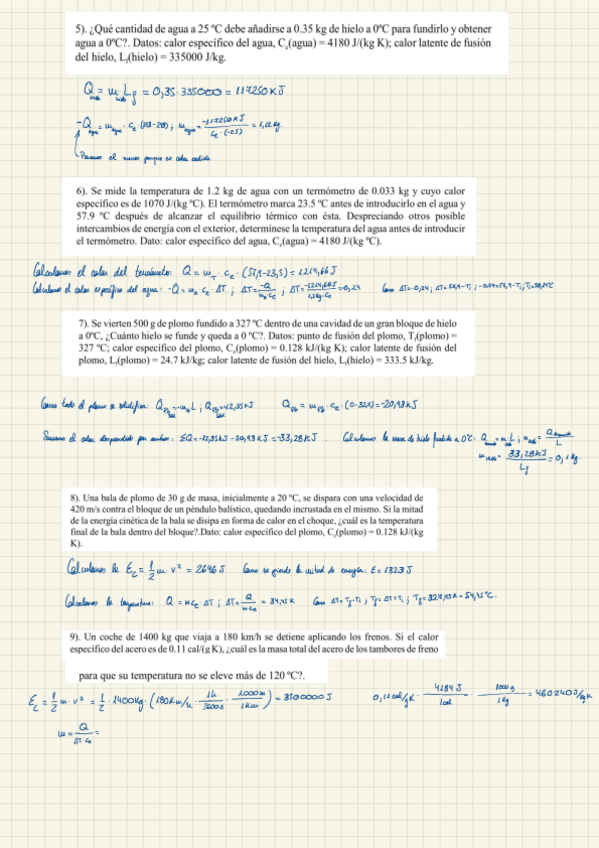 5). ¿Qué cantidad de agua a 25 ºC debe añadirse a 0.35 kg de hielo a 0ºC para fundirlo y obtener
agua a 0ºC?. Datos: calor especifico del agua, Cₑ(agua) = 4180 J/(kg K); calor latente de fusión
del hielo, L_f(hielo) = 335000 J/kg.
Q hielo = m hielo · L_f = 0,35 · 335000 = 117250 KJ
-Q agua = m agua · Cₑ · (273-298) ; m agua = -117250 KJ / Cₑ · (-25) = 1,12 Kg.
Ponemos el menos porque es calor cedido.
6). Se mide la temperatura de 1.2 kg de agua con un termómetro de 0.033 kg y cuyo calor
especifico es de 1070 J/(kg ºC). El termómetro marca 23.5 ºC antes de introducirlo en el agua y
57.9 ºC después de alcanzar el equilibrio térmico con ésta. Despreciando otros posible
intercambios de energía con el exterior, determínese la temperatura del agua antes de introducir
el termómetro. Dato: calor especifico del agua, Cₑ(agua) = 4180 J/(kg ºC).
Calculamos el calor del termómetro: Q = m_T · Cₑ · (57,9-23,5) = 1214,66 J
Calculamos el calor específico del agua: -Q = m_A · Cₑ · ΔT ; ΔT = -Q / m_A Cₑ ; ΔT = -1214,66 J / 1,2 Kg · Cₑ = -0,24 Como ΔT = -0,24 ;
7). Se vierten 500 g de plomo fundido a 327 ºC dentro de una cavidad de un gran bloque de hielo
a 0ºC, ¿Cuánto hielo se funde y queda a 0 ºC?. Datos: punto de fusión del plomo, T_f(plomo) =
327 ºC; calor especifico del plomo, Cₑ(plomo) = 0.128 kJ/(kg K); calor latente de fusión del
plomo, L_f(plomo) = 24.7 kJ/kg; calor latente de fusión del hielo, L_f(hielo) = 333.5 kJ/kg.
Como todo el plomo se solidifica: Q = -m · L ; Q = -12,35 KJ Q_Pb = m_Pb · Cₑ · (0-327) = -20,93 KJ
Sumamos el calor desprendido por ambos: ΣQ = -12,35 KJ - 20,93 KJ = -33,28 KJ . Calculamos la masa de hielo fundida a 0ºC: Q = m · L ; m = Q / L
m hielo = 33,28 KJ / L_f = 0,1 Kg.
8). Una bala de plomo de 30 g de masa, inicialmente a 20 ºC, se dispara con una velocidad de
420 m/s contra el bloque de un péndulo balístico, quedando incrustada en el mismo. Si la mitad
de la energía cinética de la bala se disipa en forma de calor en el choque, ¿cuál es la temperatura
final de la bala dentro del bloque?.Dato: calor especifico del plomo, Cₑ(plomo) = 0.128 kJ/(kg
K).
Calculamos la E_c = 1/2 m · v² = 2646 J Como se pierde la mitad de energía: E = 1323 J
Calculamos la temperatura: Q = m Cₑ ΔT ; ΔT = Q / m Cₑ = 34,45 K Como ΔT = T_f - T_i ; T_f = ΔT + T_i ; T_f = 327,45 K = 54,45 ºC.
9). Un coche de 1400 kg que viaja a 180 km/h se detiene aplicando los frenos. Si el calor
especifico del acero es de 0.11 cal/(g K), ¿cuál es la masa total del acero de los tambores de freno
para que su temperatura no se eleve más de 120 ºC?.
E_c = 1/2 m · v² = 1/2 · 1400 Kg · (180 Km/h · 1h / 3600 s · 1000 m / 1 Km) = 3500000 J 0,11 cal/g K · 4184 J / 1 cal · 1000 g / 1 Kg = 460240 J/Kg K
m = Q / ΔT Cₑ =